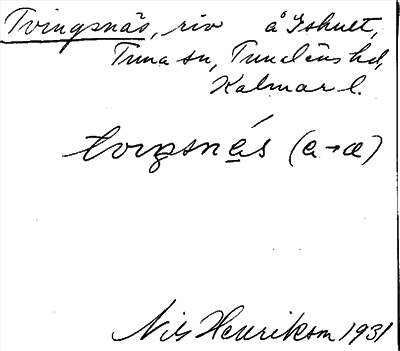 Tvingsnäs, riv å Ishult,
Tuna sn, Tunaläns hd,
Kalmar l.
tvıŋsnás (a→æ)
Nils Henrikson 1931